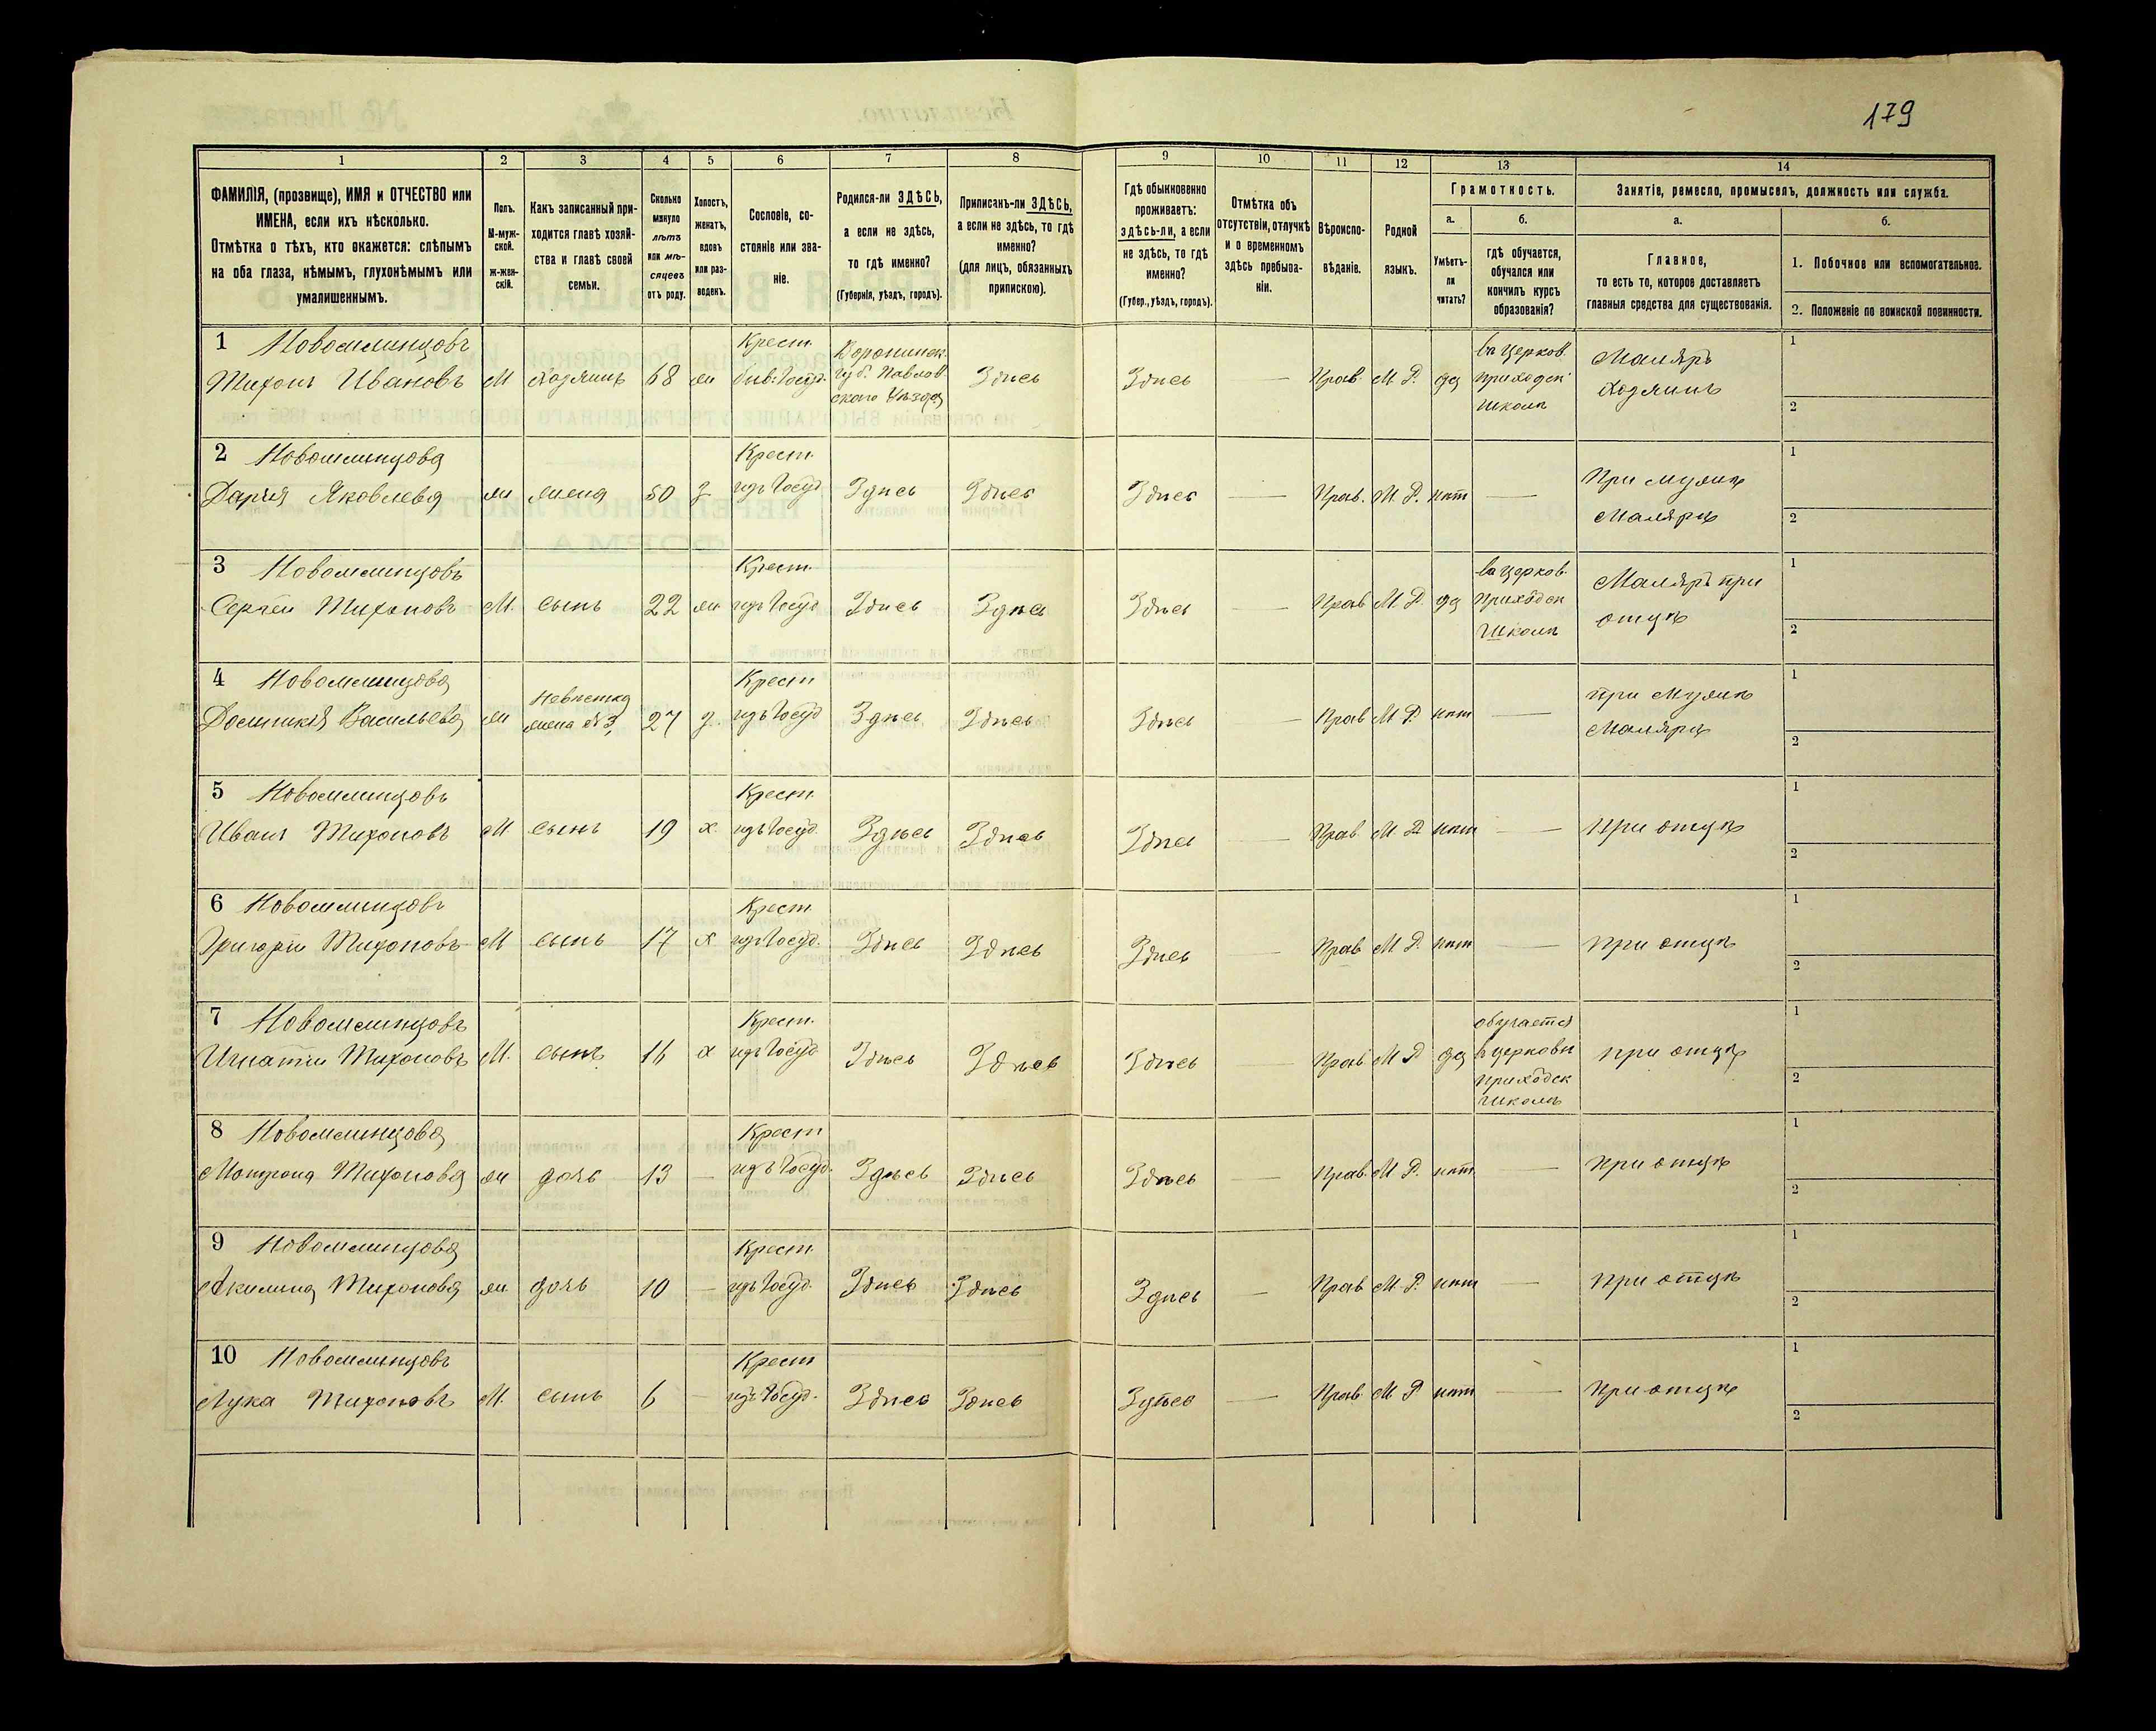 179
1 2 3 4 5 6 7 8 9 10 11 12 13 14
ФАМИЛІЯ, (прозвище), ИМЯ и ОТЧЕСТВО или
ИМЕНА, если ихъ нѣсколько.
Отмѣтка о тѣхъ, кто окажется: слѣпымъ
на оба глаза, нѣмымъ, глухонѣмымъ или
умалишеннымъ.
Полъ.
М-муж-
ской.
Ж-жен-
скій.
Какъ записанный при-
ходится главѣ хозяй-
ства и главѣ своей
семьи.
Сколько
минуло
лѣтъ
или мѣ-
сяцевъ
отъ роду.
Холостъ,
женатъ,
вдовъ
или раз-
веденъ.
Сословіе, со-
стояніе или зва-
ніе.
Родился-ли ЗДѢСЬ,
а если не здѣсь,
то гдѣ именно?
(Губернія, уѣздъ, городъ).
Приписанъ-ли ЗДѢСЬ,
а если не здѣсь, то гдѣ
именно?
(для лицъ, обязанныхъ
припискою).
Гдѣ обыкновенно
проживаетъ:
здѣсь-ли, а если
не здѣсь, то гдѣ
именно?
(Губер., уѣздъ, городъ).
Отмѣтка объ
отсутствіи, отлучкѣ
и о временномъ
здѣсь пребыва-
ніи.
Вѣроиспо-
вѣданіе.
Родной
языкъ.
Грамотность.
а.
Умѣетъ-
ли
читать?
б.
гдѣ обучается,
обучался или
кончилъ курсъ
образованія?
Занятіе, ремесло, промыселъ, должность или служба.
а.
Главное,
то есть то, которое доставляетъ
главныя средства для существованія.
б.
1. Побочное или вспомогательное.
2. Положеніе по воинской повинности.
1 Новомлинцовъ
Тихонъ Ивановъ М хозяинъ 68 ж
Крест.
Воронинск.
губ. Павлов
скаго Уѣзда
Здѣсь Здѣсь — Прав. М. Р. да
въ церков.
приходск
школѣ
Маляръ
хозяинъ
1
2
2 Новомлинцова
Дарья Яковлева ж жена 50 з
Крест.
изъ Госуд
Здѣсь Здѣсь Здѣсь — Прав. М. Р. нѣт —
При мужѣ
Малярѣ
1
2
3 Новомлинцовъ
Сергѣй Тихоновъ М. сынъ 22 ж
Крест.
изъ Госуд
Здѣсь Здѣсь Здѣсь — Прав М. Р. да
въ церков.
приходск
школѣ
Маляръ при
отцѣ
1
2
4 Новомлинцова
Домникія Васильева ж
невѣстка
жена № 3,
27 з.
Крест
изъ Госуд
Здѣсь Здѣсь Здѣсь — Прав М. Р. нѣт —
при Мужѣ
Малярѣ
1
2
5 Новомлинцовъ
Иванъ Тихоновъ М сынъ 19 х.
Крест.
изъ Госуд.
Здѣсь Здѣсь Здѣсь — Прав. М Р. нѣт — при отцѣ
1
2
6 Новомлинцовъ
Григорій Тихоновъ М сынъ 17 х
Крест.
изъ Госуд.
Здѣсь Здѣсь Здѣсь — Прав М. Р. нѣт — при отцѣ
1
2
7 Новомлинцовъ
Игнатій Тихоновъ М. сынъ 16 х
Крест.
изъ Госуд
Здѣсь Здѣсь Здѣсь — Прав. М Р да
обучается
в церковн
приходск
школѣ
при отцѣ
1
2
8 Новомлинцова
Мотрона Тихонова ж дочь 13 —
Крест
изъ Госуд.
Здѣсь Здѣсь Здѣсь — Прав. М Р. нѣт — при отцѣ
1
2
9 Новомлинцова
Акилина Тихонова ж дочь 10 —
Крест.
изъ Госуд.
Здѣсь Здѣсь Здѣсь — Прав М Р. нѣт — при отцѣ
1
2
10 Новомлинцовъ
Лука Тихоновъ М. сынъ 6 —
Крест
изъ Госуд.
Здѣсь Здѣсь Здѣсь — Прав М Р нѣт — при отцѣ
1
2